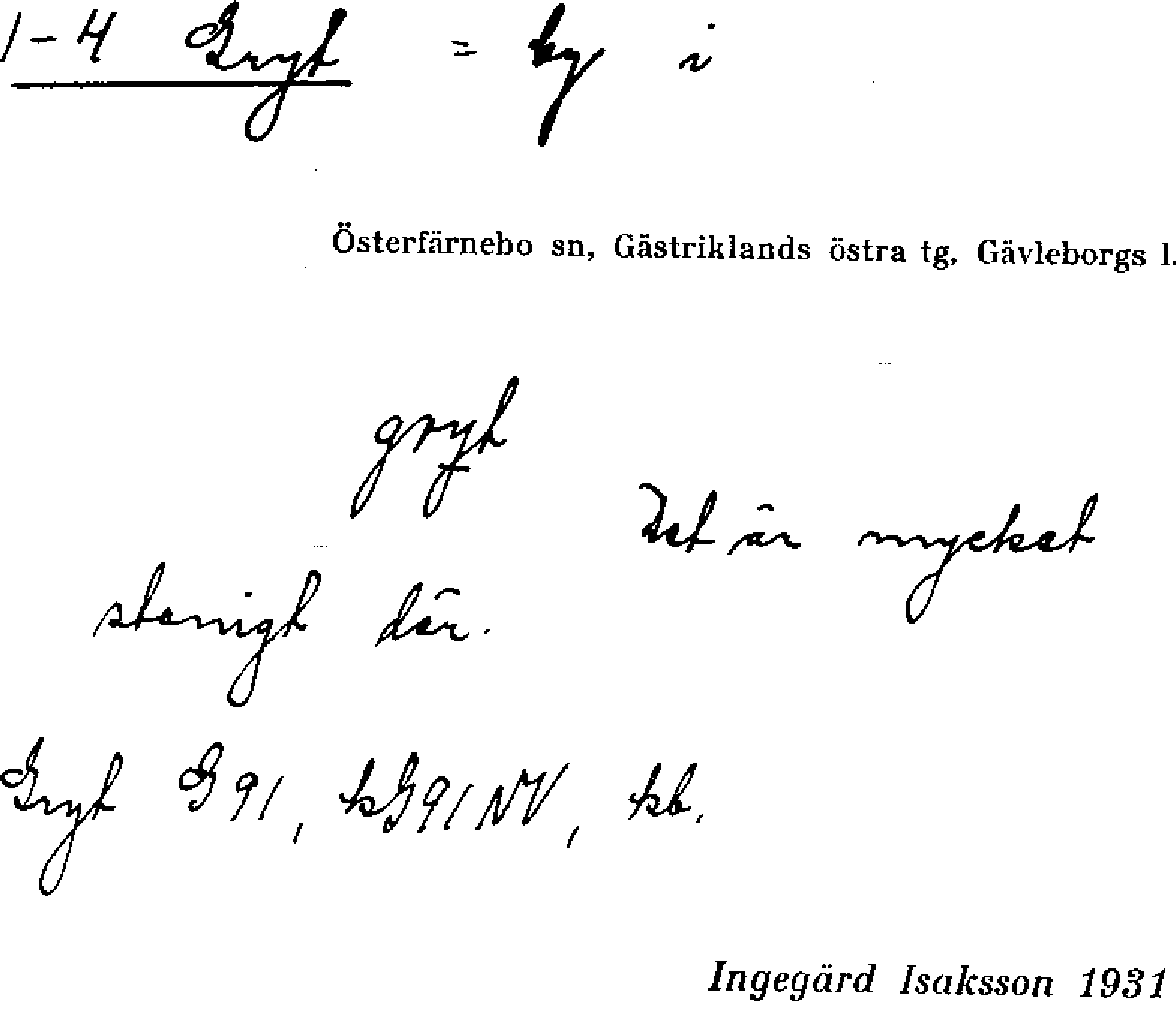 1-4 Gryt = by i
Österfärnebo sn, Gästriklands östra tg, Gävleborgs l.
gryt
Det är mycket
stenigt där.
Gryt G 91, kG91NV, kb.
Ingegärd Isaksson 1931